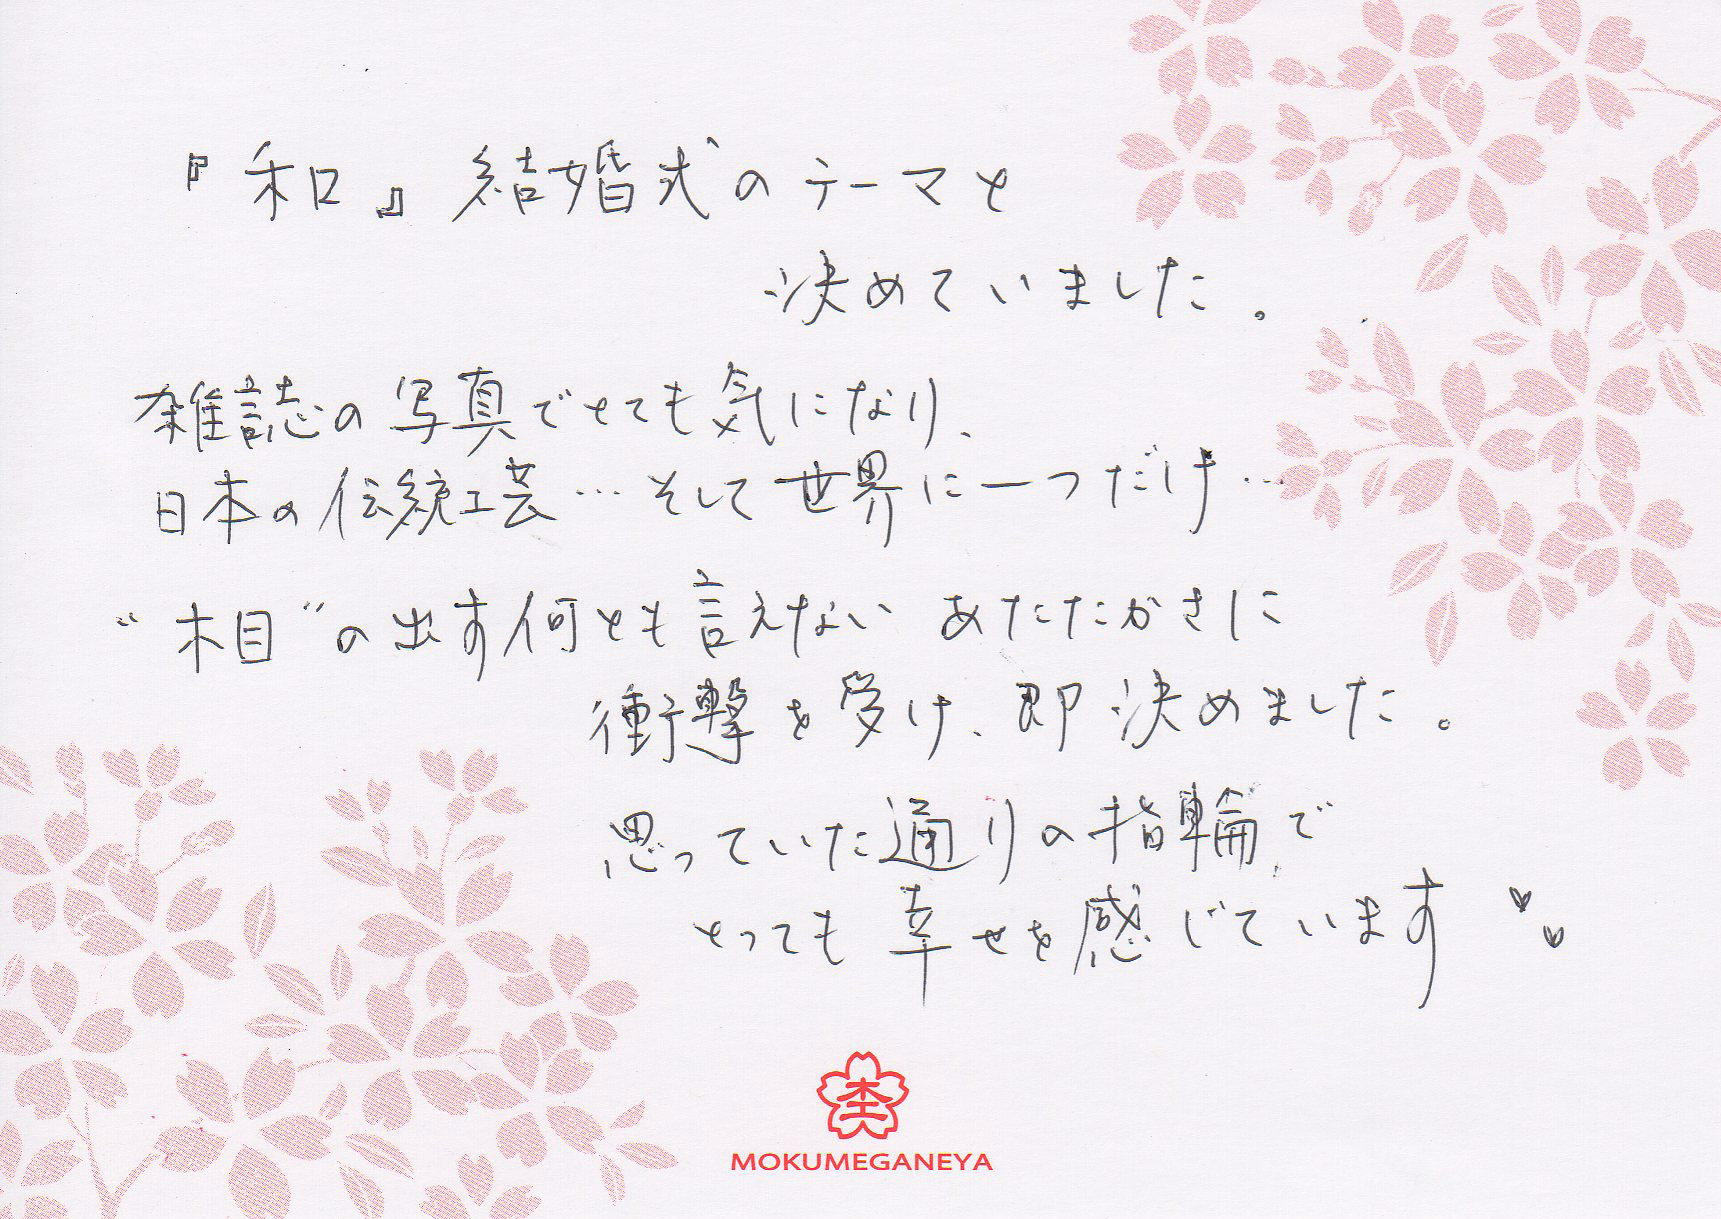 『和』結婚式のテーマと
決めていました。
雑誌の写真でとても気になり、
日本の伝統工芸…そして世界に一つだけ…
“木目”の出す何とも言えない あたたかさに
衝撃を受け、即決めました。
思っていた通りの指輪で
とっても幸せを感じています♥♥
MOKUMEGANEYA